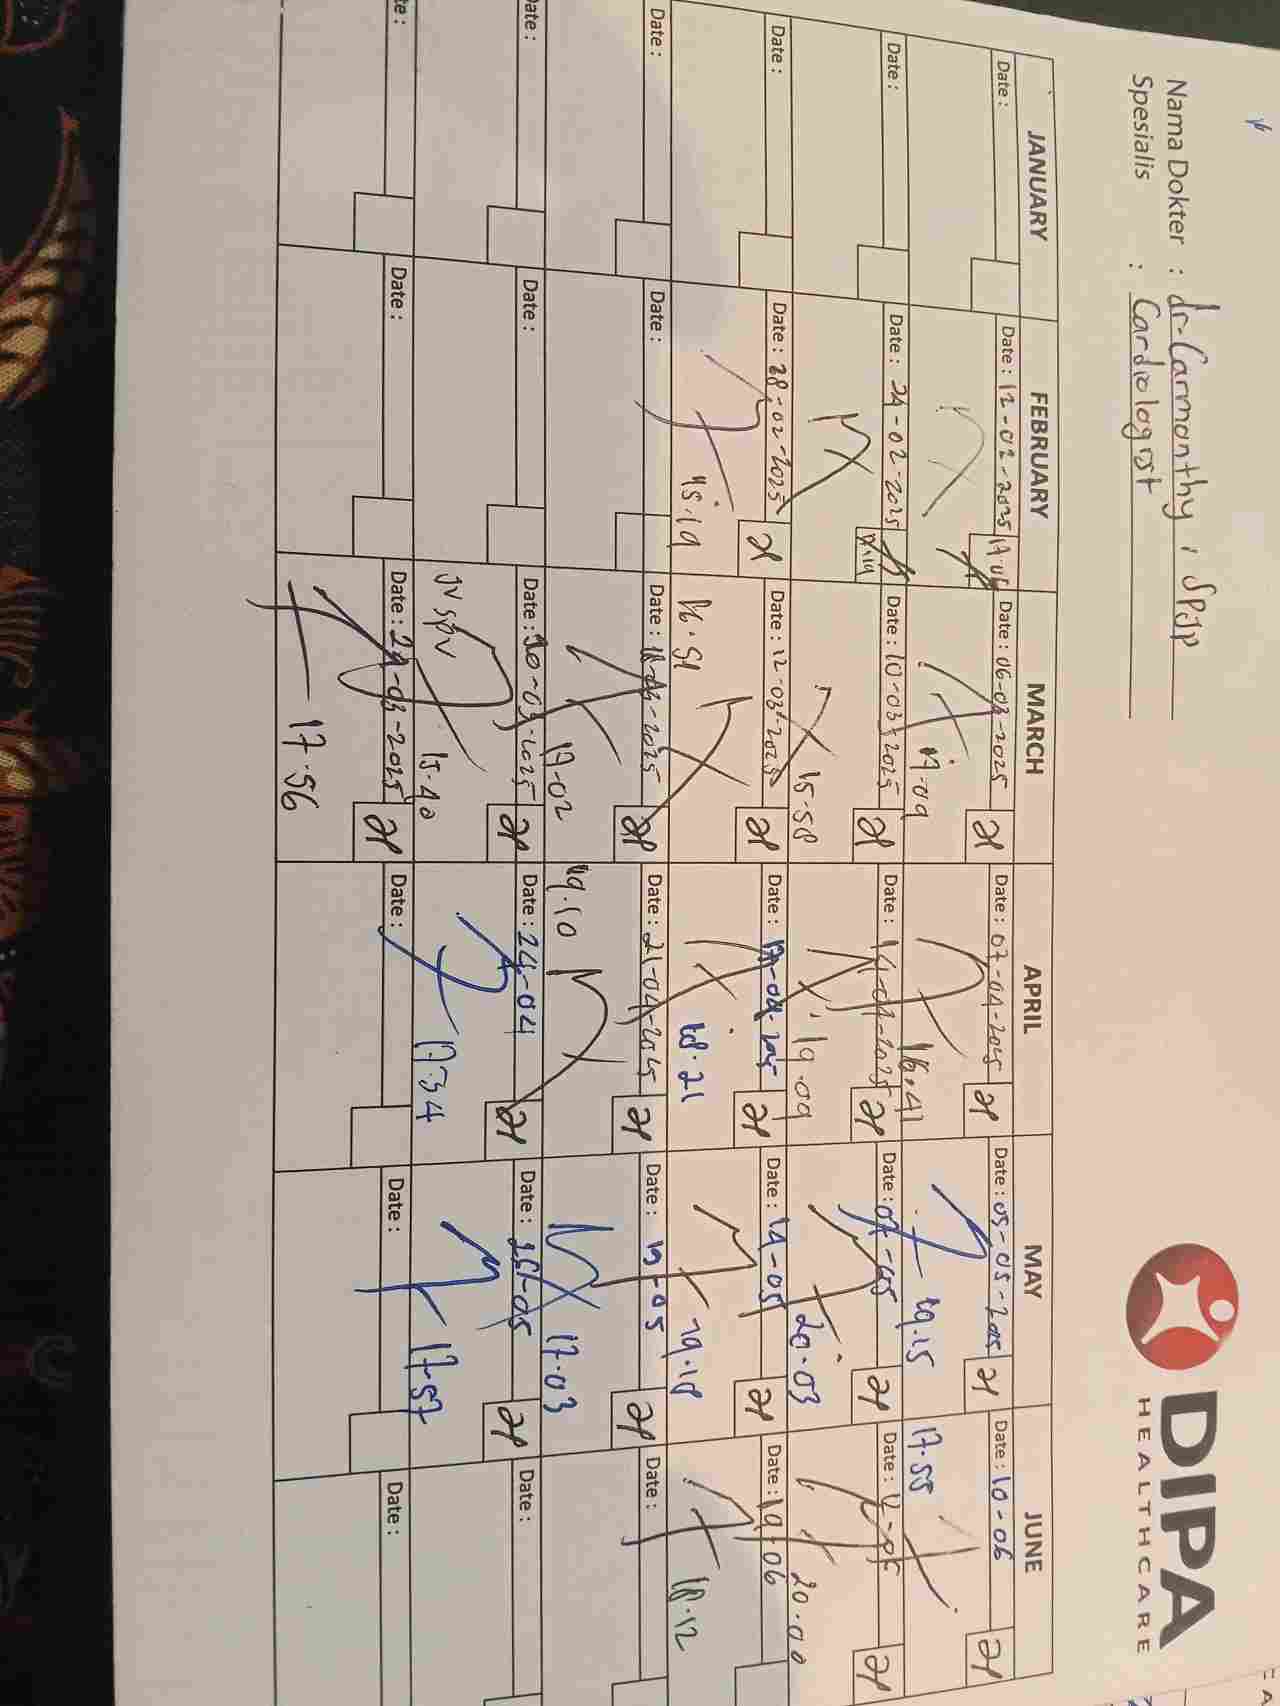 DIPA
HEALTHCARE
Nama Dokter : dr. Carmonthy, SPJP
Spesialis : Cardiologist
JANUARY FEBRUARY MARCH APRIL MAY JUNE
Date : Date : 12-02-2025 Date : 06-03-2025 Date : 07-04-2025 Date : 05-05-2025 Date : 10-06
17.06 17.09 16.41 19.15 17.55
Date : Date : 24-02-2025 Date : 10-03-2025 Date : 14-04-2025 Date : 07-05 Date :
17.19 15.58 19.09 20.03 20.00
Date : Date : 28-02-2025 Date : 12-03-2025 Date : 17-04-2025 Date : 14-05 Date : 19-06
15.19 16.51 18.21 19.18 18.12
Date : Date : Date : Date : 21-04-2025 Date : 19-05 Date :
17.02 19.10 17.03
Date : Date : Date : 20-03-2025 Date : 24-04 Date : Date :
15.40 17.34 17.57
Date : Date : Date : Date : Date : Date :
17.56